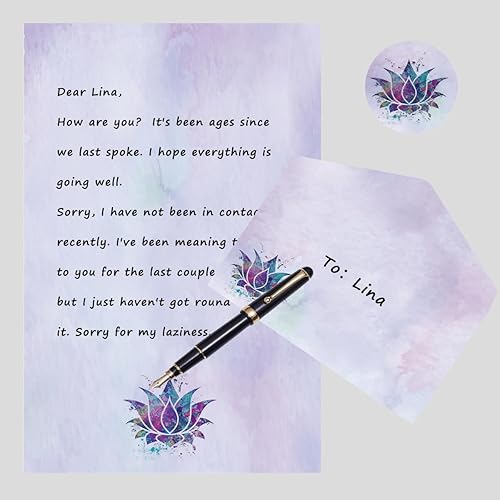 Dear Lina,
How are you?  It's been ages since
we last spoke. I hope everything is
going well.
Sorry, I have not been in contac
recently. I've been meaning t
to you for the last couple
but I just haven't got roun
it. Sorry for my laziness.
To: Lina